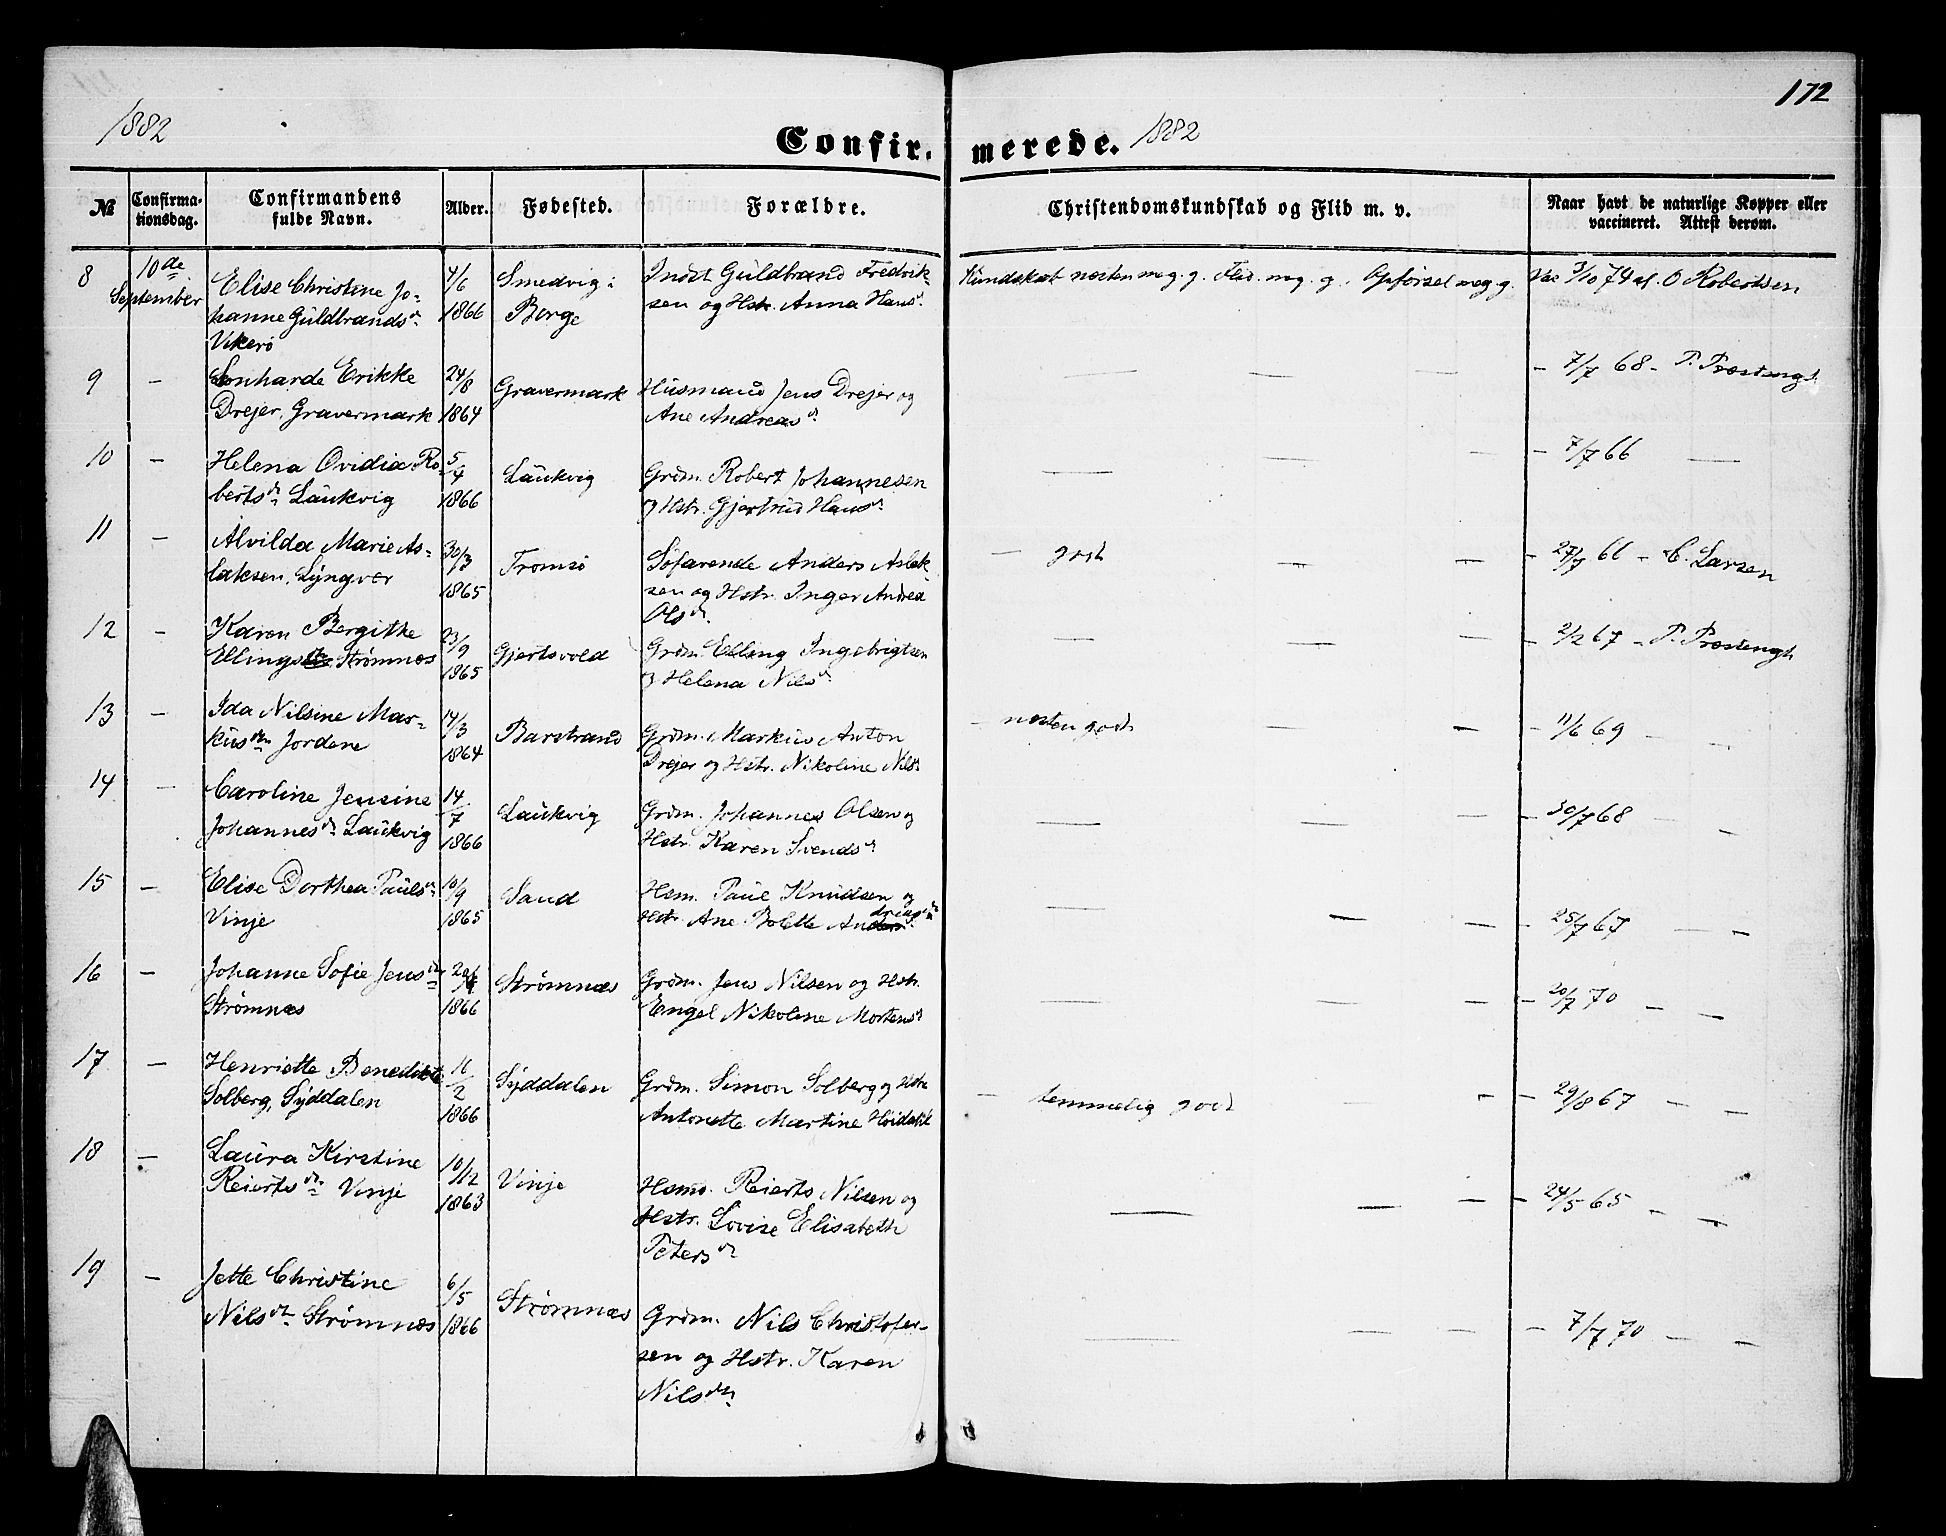 172
1882
Confir- merede. 1882
№
Confirma-
tionsdag.
Confirmandens
fulde Navn.
Alder.
Fødested.
Forældre.
Christendomskundskab og Flid m. v.
Naar havt de naturlige Kopper eller
vaccineret. Attest derom.
8
10de
September
Elise Christine Jo-
hanne Guldbrandsdr
Vikerö
4/6
1866
Smedvig i
Borge
Indst Guldbrand Fredrik-
sen og Hstr. Anna Hansdr
Kundskab nesten meg. g. Flid meg. g. Opførsel meg g.
Vac 3/10 74 af O Robertsen
9 —
Lenharde Erikke
Drejer, Gravermark
24/8
1864
Gravermark
Husmand Jens Drejer og
Ane Andreasdr
— — —
— 7/7 68 — P. Præstengh
10 —
Helena Ovidia Ro-
bertsdr Laukvig
5/4
1866
Laukvig
Grdm. Robert Johannesen
og Hstr. Gjertrud Hansdr
— — —
— 7/7 66 —
11 —
Alvilda Marie As-
laksen, Lyngvær
30/3
1865
Tromsö
Söfarende Anders Aslak-
sen og Hstr. Inger Andrea
Olsdr.
— godt — —
— 27/9 66 — C. Larsen
12 —
Karen Bergitke
Ellings Strømnæs
23/9
1865
Gjertsvold
Grdm. Elling Ingebrigtsen
og Helena Nilsdr
— — —
— 2/2 67 — P. Præstengh
13 —
Ida Nilsine Mar-
kusdtr Jordene
14/3
1864
Barstrand
Grdm. Markus Anton
Drejer og Hstr. Nikoline Nilsdr
— nesten godt — —
— 11/6 69 — —
14 —
Caroline Jensine
Johannesdr Laukvig
14/7
1866
Laukvig
Grdm. Johannes Olsen og
Hstr. Karen Svendsdr
— — —
— 30/7 68 — —
15 —
Elise Dorthea Paulsdr
Vinje
10/9
1865
Sand
Hsm. Paul Knudsen og
Hstr. Ane Bolette Andreasdr
— — —
25/7 67 — —
16 —
Johanne Sofie Jensdr
Strømnæs
1866
Strømnæs
Grdm. Jens Nilsen og Hstr.
Engel Nikoline Mortensdr
— — —
— 20/7 70 — —
17 —
Henriette Benedikte
Solberg, Syddalen
16/2
1866
Syddalen
Grdm. Simon Solberg og Hstr
Antonette Martine
— temmelig godt — —
— 29/8 67 — —
18 —
Laura Kirstine
Reiertsdr Vinje
10/12
1863
Vinje
Hsmd. Reierts Nilsen og
Hstr. Lovise Elisabeth
Petersdr
— — —
— 24/5 65 — —
19 —
Jette Christine
Nilsdr Strømnæs
6/5
1866
Strømnæs
Grdm. Nils Christofer-
sen og Hstr. Karen
Nilsdtr
— — —
— 7/7 70 — —